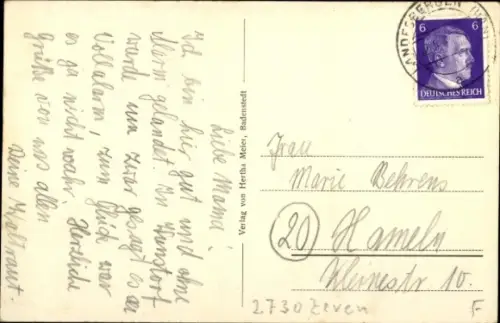 Liebe Mama!
Ich bin hier gut und ohne
Alarm gelandet. In Wunstorf
wurde uns zwar gesagt es sei
Vollalarm, zum Glück war
es ja nicht wahr. Herzliche
Grüße von uns allen
Deine Waltraut.
Verlag von Hertha Meier, Badenstedt
LANDESBERGEN (HAN)
6 6
DEUTSCHES REICH
Frau
Marie Behrens
20 Hameln
Kleinestr 10.
2730 Zeven F